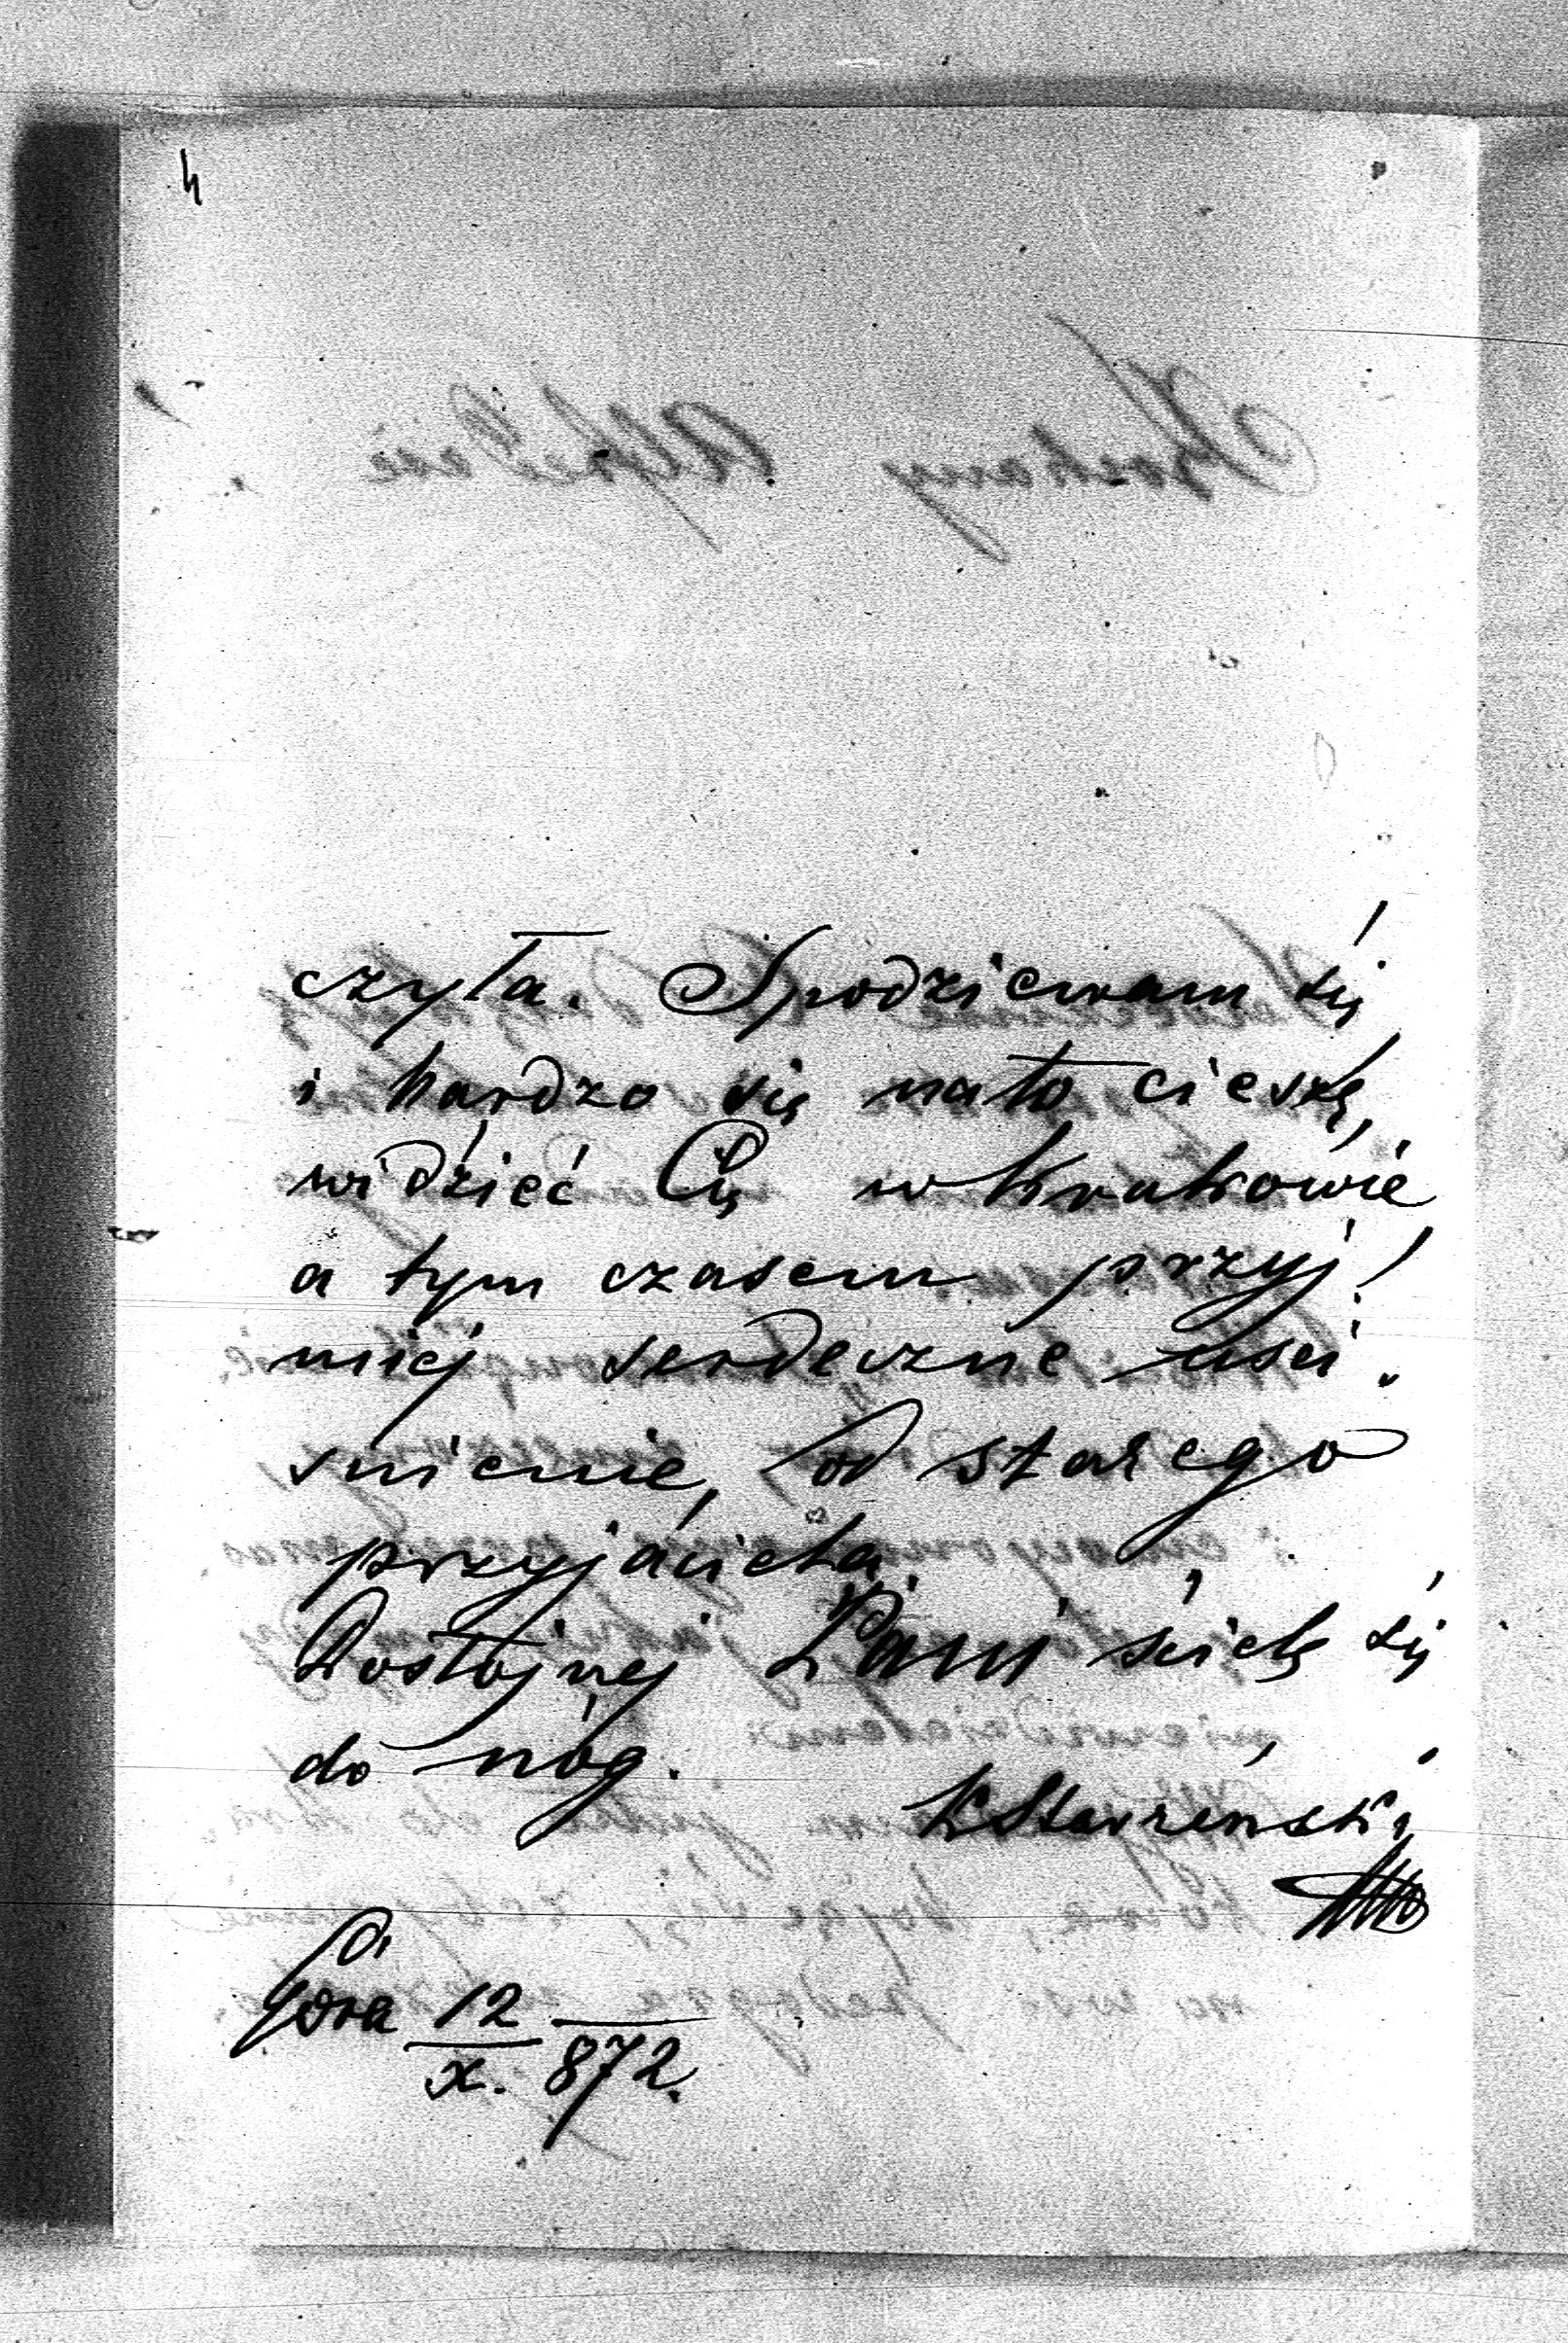 4
czyła. Spodziewam się
i bardzo się na to cieszę,
widzieć Cię w Krakowie
a tym czasem przyj!
miej serdeczne uści
snienie, od starego
przyjaciela
Dostojnej Pani ścielę się
do nóg.
KStarzeński
Góra 12/X. 872.